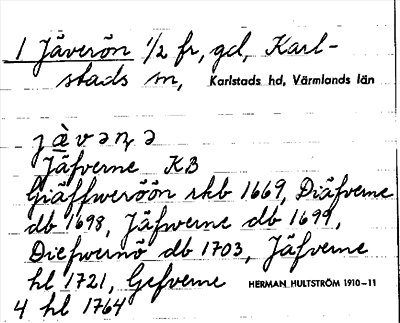 1 Jäverön 1/2 fr, gd, Karl-
stads sn, Karlstads hd, Värmlands län
jävəṇə
Jäfverne KB
Giäffweröön rkb 1669, Diäfverne
db 1698, Jäfwerne db 1699,
Diefwernö db 1703, Jäfverne
hl 1721, Gefverne HERMAN HULTSTRÖM 1910-11
4 hl 1764